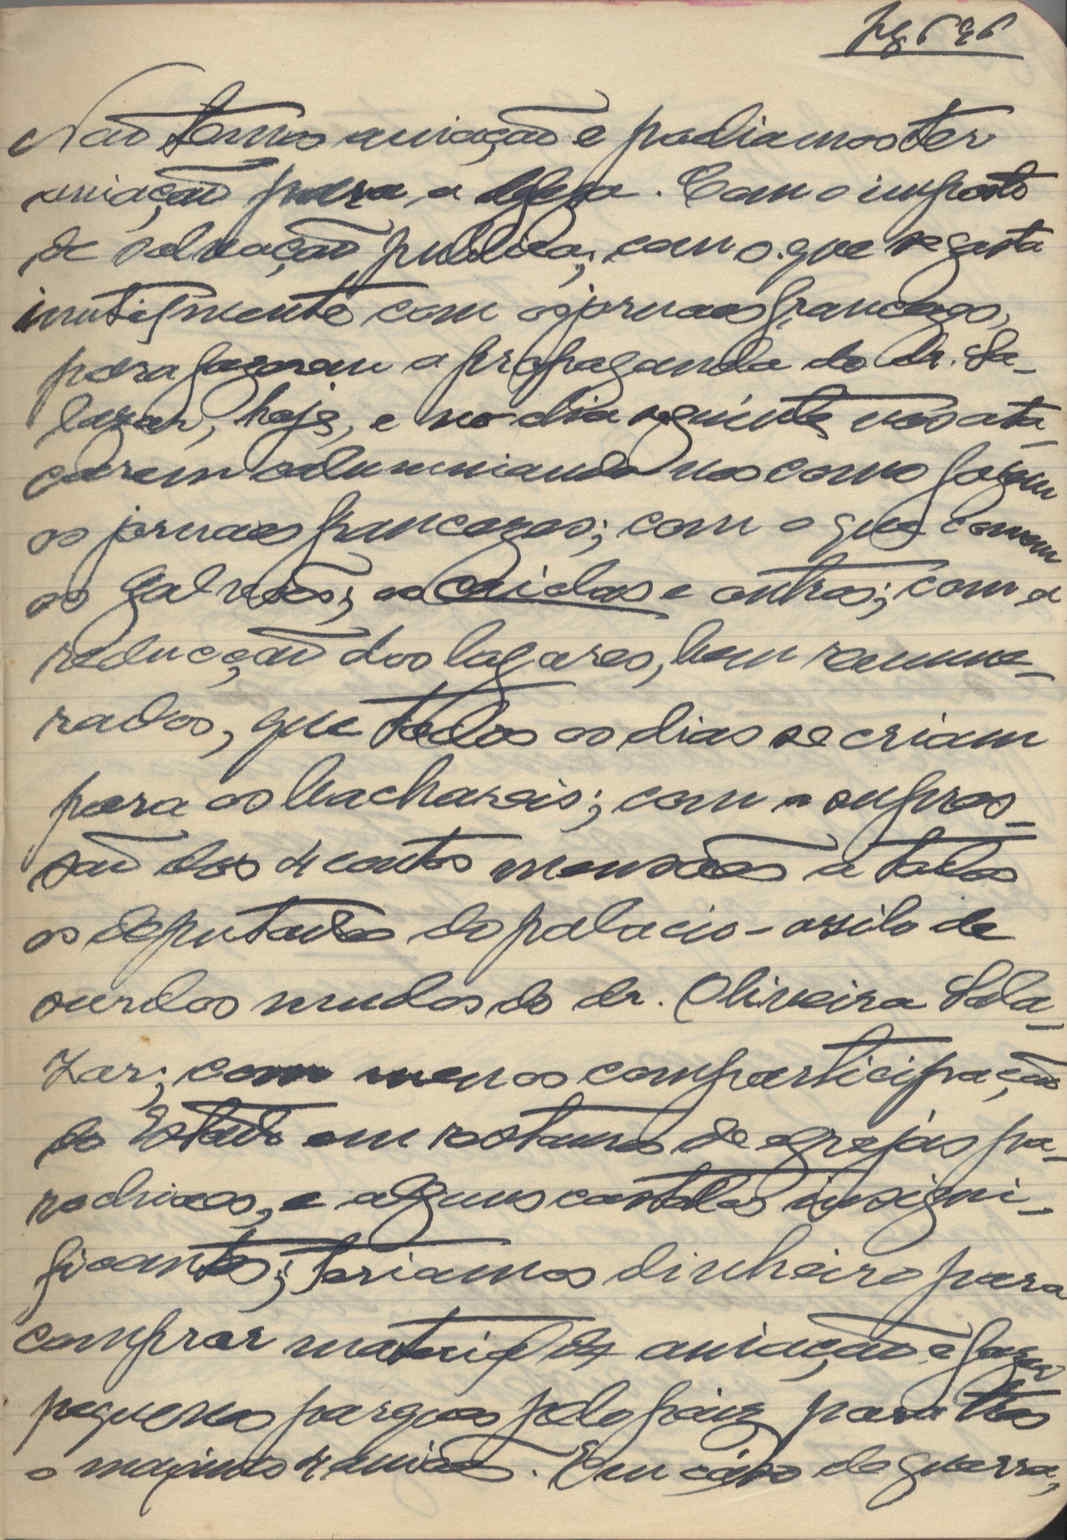 Não temos aviação e podiamos ter
aviação para a defeza. Com o imposto
de salvação publica; com o que se gasta
inutilmente com os jornaes francezes,
para fazerem a propaganda do dr. Sa-
lazar, hoje, e no dia seguinte nos ata-
carem calumniando nos como fazem
os jornaes francezes; com o que comem
os Galvões; os cuidas e outros; com a
reducção dos logares, bem remune-
rados, que todos os dias se criam
para os bachareis; com a supres-
são dos 4 contos mensaes a todos
os deputados do palacio-asilo de
surdos mudos do dr. Oliveira Sala-
zar; com menos comparticipação
do Estado em restauros de egrejas pa-
rochiaes, e alguns castelos insigni-
ficantes; teriamos dinheiro para
comprar material de aviação e fazer
pequenos parques pelo paiz para tres
o maximo 4 aviões. Em cáso de guerra,